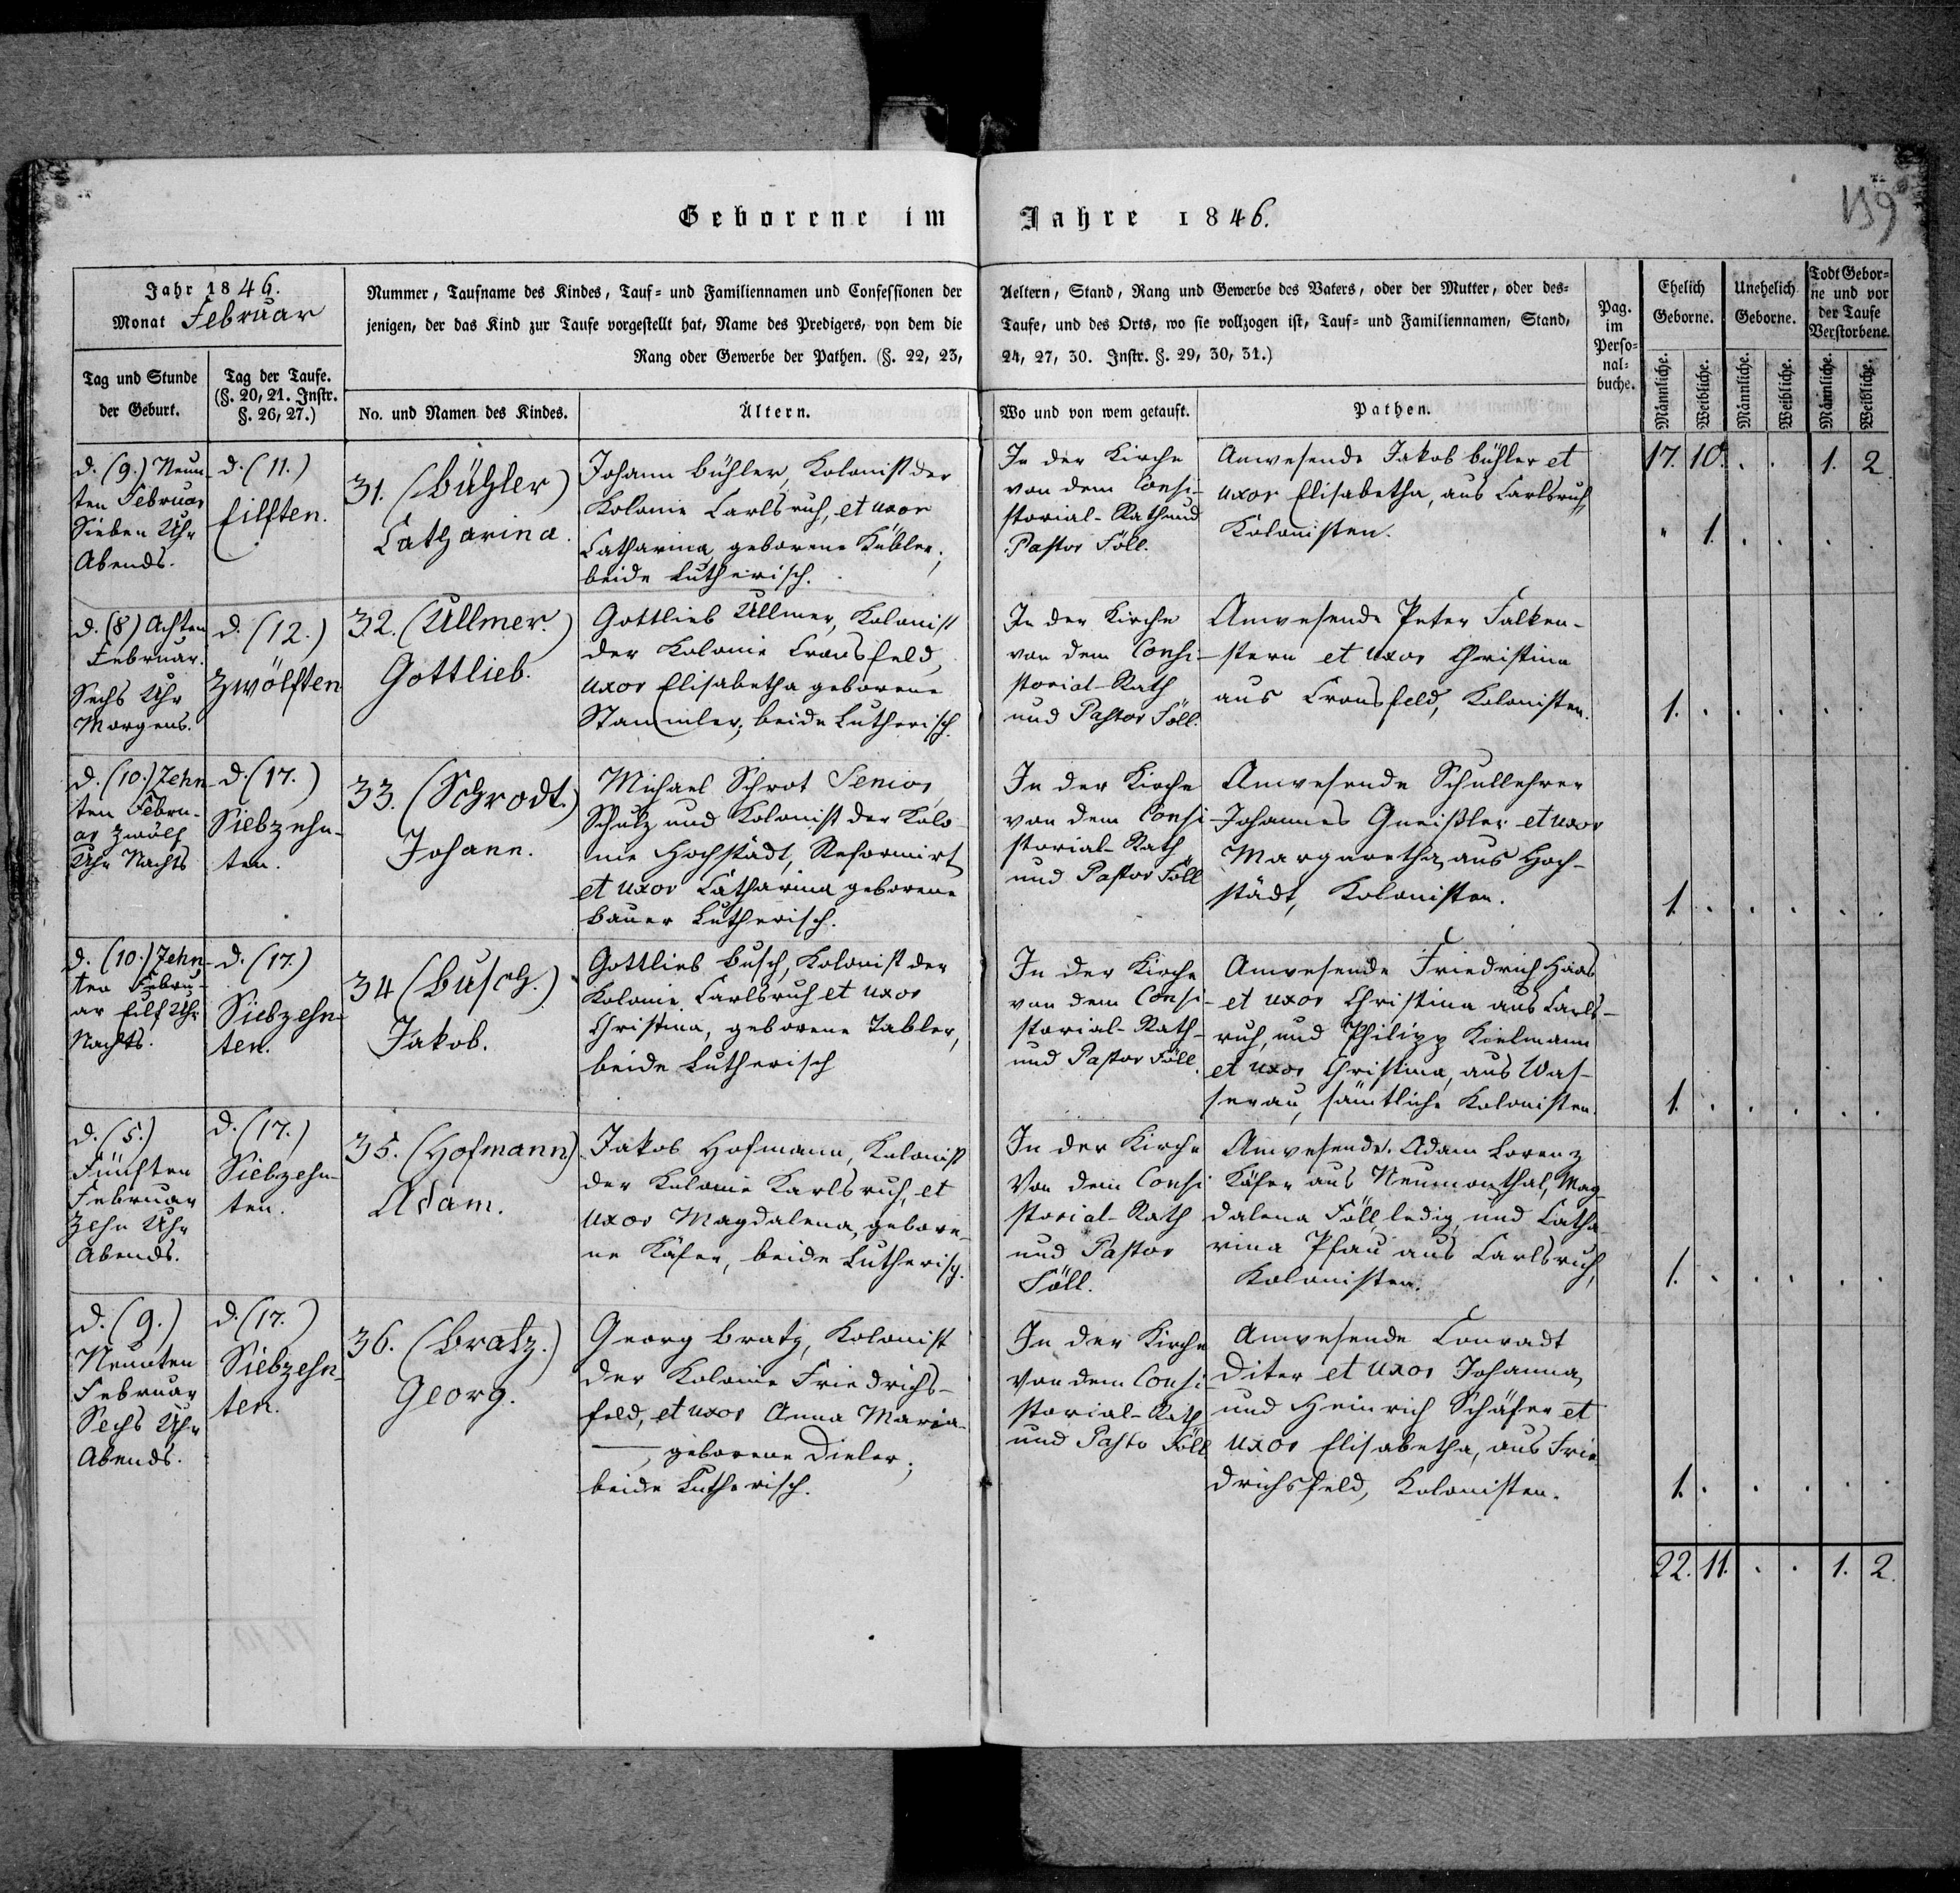 Geborene im Jahre 1846.
159
Jahr 1846.
Monat Februar
Nummer, Taufname des Kindes, Tauf- und Familiennamen und Confessionen der
jenigen, der das Kind zur Taufe vorgestellt hat, Name des Predigers, von dem die
Rang oder Gewerbe der Pathen. (§. 22, 23,
Aeltern, Stand, Rang und Gewerbe des Vaters, oder der Mutter, oder des-
Taufe, und des Orts, wo sie vollzogen ist, Tauf- und Familiennamen, Stand,
24, 27, 30. Instr. §. 29, 30, 31.)
Pag.
im
Perso-
nal-
buche.
Ehelich
Geborne.
Unehelich
Geborne.
Todt Gebor-
ne und vor
der Taufe
Verstorbene.
Tag und Stunde
der Geburt.
Tag der Taufe.
(§. 20, 21. Instr.
§. 26, 27.)
No. und Namen des Kindes.
Ältern.
Wo und von wem getauft.
Pathen.
Männliche.
Weibliche.
Männliche.
Weibliche.
Männliche.
Weibliche.
d. (9.) Neun
ten Februar
Sieben Uhr
Abends.
d. (11.)
Eilften.
31. (Bühler)
Catharina.
Johann Bühler, Kolonist der
Kolonie Carlsruh, et uxor
Catharina, geborene Kübler;
beide Lutherisch.
In der Kirche
von dem Consi-
storial-Rath und
Pastor Föll.
Anwesende Jakob Bühler et
uxor Elisabetha, aus Carlsruh,
Kolonisten.
17. 10. . . 1. 2
" 1. . . . .
d. (8) Achten
Februar.
Sechs Uhr
Morgens.
d. (12.)
Zwölften
32. (Ullmer.)
Gottlieb.
Gottlieb Ullmer, Kolonist
der Kolonie Cronsfeld,
uxor Elisabetha geborene
Stammler; beide Lutherisch.
In der Kirche
von dem Consi-
storial-Rath
und Pastor Föll.
Anwesende Peter Falken-
stern et uxor Christina
aus Cronsfeld, Kolonisten.
1. . . . . .
d. (10.) Zehn
ten Febru-
ar Zwölf
Uhr Nachts
d. (17.)
Siebzehn-
ten.
33. (Schrodt.)
Johann.
Michael Schrot Senior,
Schulz und Kolonist der Kolo-
nie Hochstädt, Reformirt
et uxor Catharina geborene
Bauer Lutherisch.
In der Kirche
von dem Consi-
storial-Rath
und Pastor Föll
Anwesende Schullehrer
Johannes Gneißler et uxor
Margaretha, aus Hoch-
städt, Kolonisten.
1. . . . . .
d. (10.) Zehn-
ten Febru-
ar Eilf Uhr
Nachts.
d. (17.)
Siebzehn-
ten.
34 (Busch.)
Jakob.
Gottlieb Busch, Kolonist der
Kolonie Carlsruh et uxor
Christina, geborene Tabler,
beide Lutherisch
In der Kirche
von dem Consi-
storial-Rath-
und Pastor Föll.
Anwesende Friedrich Haas
et uxor Christina aus Carls-
ruh, und Philipp Kielmann
et uxor Christina, aus Was-
serau, sämtliche Kolonisten.
1. . . . . .
d. (5.)
Fünften
Februar
Zehn Uhr
Abends.
d. (17.)
Siebzehn-
ten.
35. (Hofmann)
Adam.
Jakob Hofmann, Kolonist
der Kolonie Karlsruh, et
uxor Magdalena, gebore-
ne Käfer, beide Lutherisch.
In der Kirche
Von dem Consi
storial-Rath
und Pastor
Föll.
Anwesende. Adam Lorenz
Käfer aus Neumonthal, Mag-
dalena Föll, ledig, und Catha
rina Pfau aus Carlsruh,
Kolonisten.
1. . . . . .
d. (9.)
Neunten
Februar
Sechs Uhr
Abends.
d. (17.)
Siebzehn-
ten.
36. (Bratz.)
Georg.
Georg Bratz, Kolonist
der Kolonie Friedrichs-
feld, et uxor Anna Maria
—, geborene Dieler;
beide Lutherisch.
In der Kirche
Von dem Consi-
storial-Rath
und Pasto Föll
Anwesende Conradt
Diter et uxor Johanna,
und Heinrich Schäfer et
uxor Elisabetha, aus Frie
drichsfeld, Kolonisten.
1. . . . . .
22. 11. . . 1. 2.